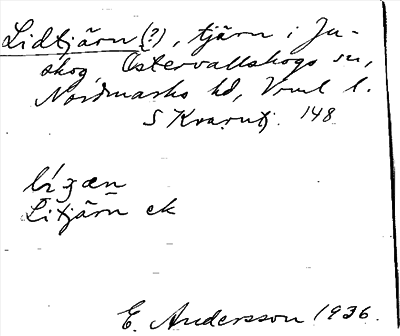 Lidtjärn (?), tjärn i Ju-
skog, Östervallskogs sn,
Nordmarks hd, Vrml l.
S Kvarntj. 148
lí ʒæn
Litjärn ek
E. Andersson 1936.